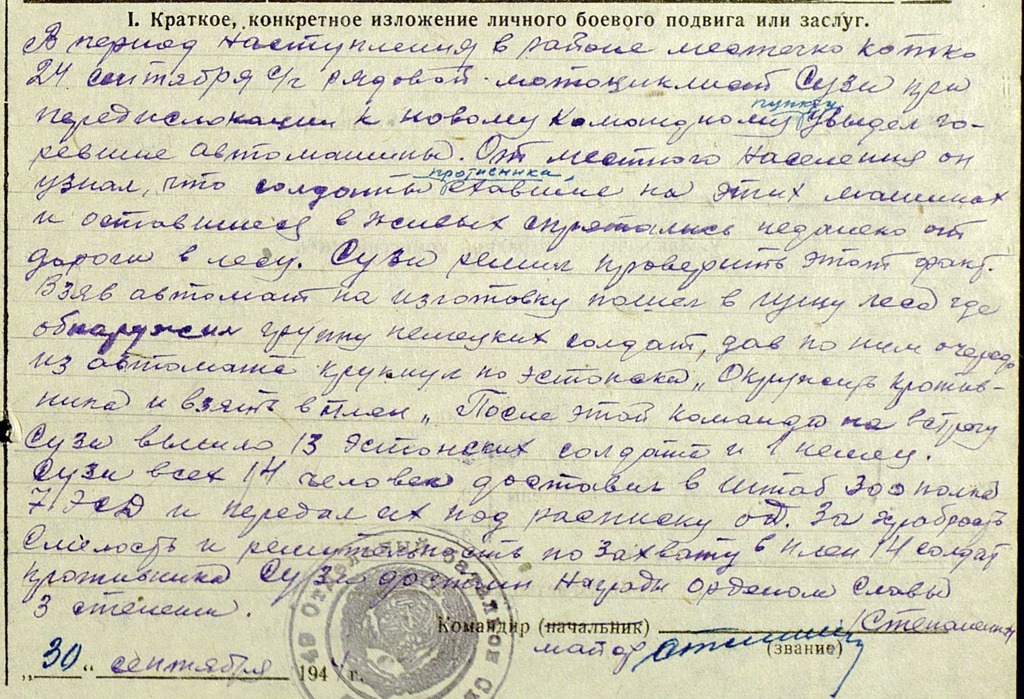 I. Краткое, конкретное изложение личного боевого подвига или заслуг.
В период наступления в районе местечко Котко
24 сентября с/г рядовой-мотоциклист Сузи при
передислокации к новому Командному пункту увидел го-
ревшие автомашины. От местного населения он
узнал, что солдаты противника, ехавшие на этих машинах
и оставшиеся в живых спрятались недалеко от
дороги в лесу. Сузи решил проверить этот факт.
Взяв автомат на изготовку пошел в гущу леса где
обнаружил группу немецких солдат, дав по ним очередь
из автомата крукнул по эстонски „Окружить против-
ника и взять в плен„ После этой команды на встречу
Сузи вышло 13 эстонских солдат и 1 немец.
Сузи всех 14 человек доставил в штаб 300 полка
7 ЭСД и передал их под расписку об. За храбрость
Смелость и решительность по Захвату в плен 14 солдат
противника Сузи достоин Награды орденом Славы
3 степени.
Командир (начальник) /Степаненко/
майор (звание)
„30„ сентября 1944 г.